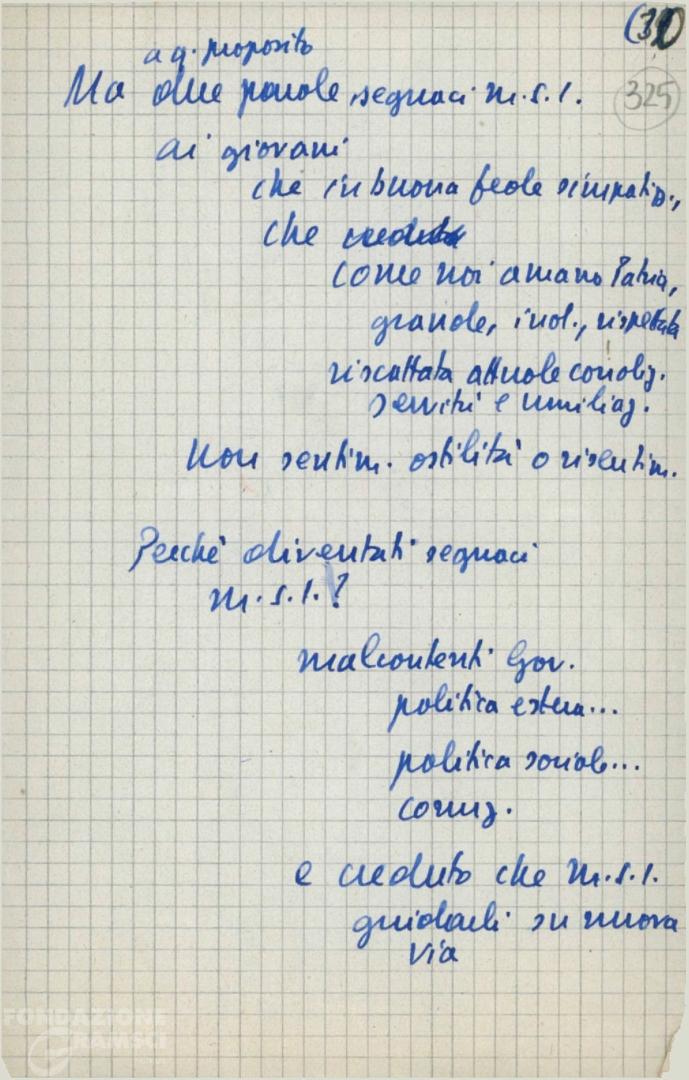 (31)
325
a q. proposito
Ma due parole seguaci M.S.I.
ai giovani
che in buona fede simpatizz.,
che creduto
come noi amano Patria,
grande, ind., rispettata
riscattata attuale condiz.
servitù e umiliaz.
Non sentim. ostilità o risentim.
Perché diventati seguaci
M.S.I.?
malcontenti Gov.
politica estera...
politica sociale...
corruz.
e creduto che M.S.I.
guidarli su nuova
via
FONDAZIONE
GRAMSCI